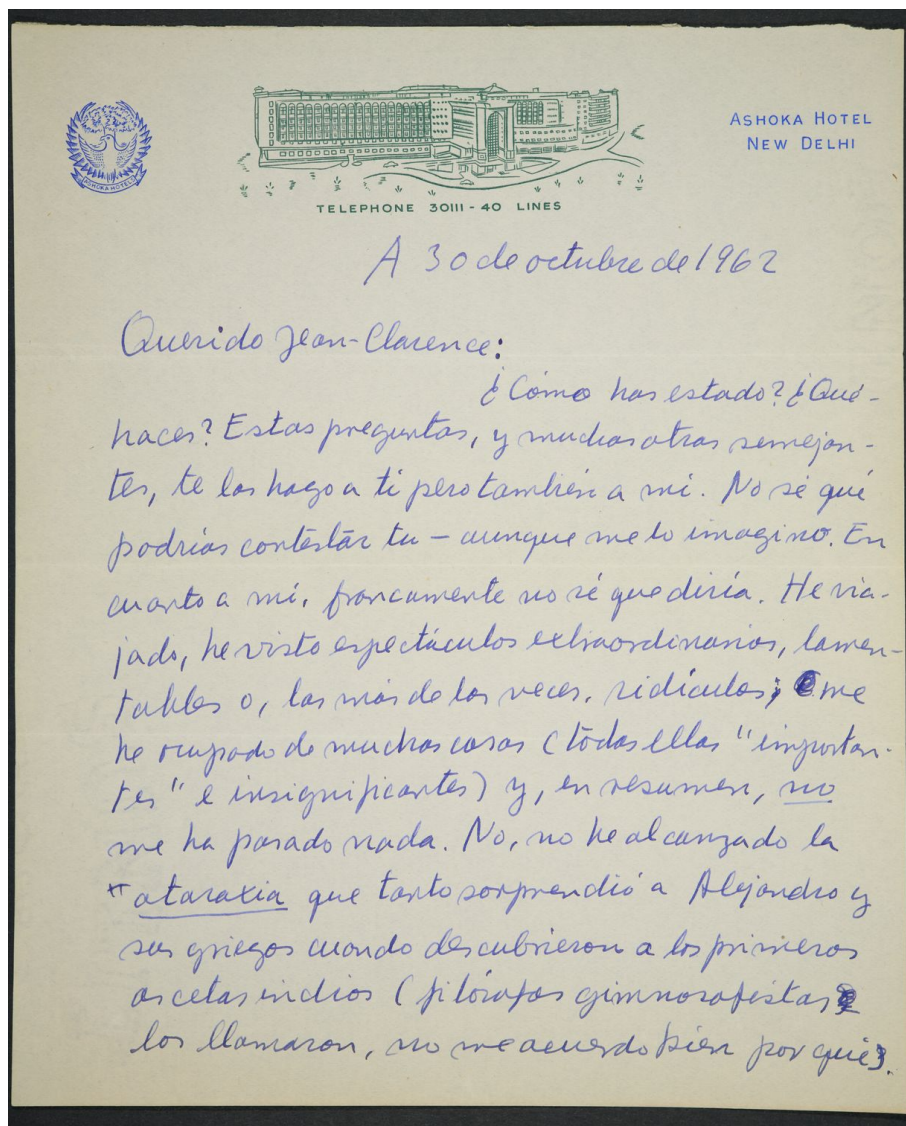 ASHOKA HOTELS
ASHOKA HOTEL
NEW DELHI
TELEPHONE 30111 - 40 LINES
A 30 de octubre de 1962
Querido Jean-Clarence:
¿Cómo has estado? ¿Qué
haces? Estas preguntas, y muchas otras semejan-
tes, te las hago a ti pero también a mí. No sé qué
podrías contestar tu – aunque me lo imagino. En
cuanto a mí, francamente no sé que diría. He via-
jado, he visto espectáculos extraordinarios, lamen-
tables o, las más de las veces, ridículos; me
he ocupado de muchas cosas (todas ellas "importan-
tes" e insignificantes) y, en resumen, no
me ha pasado nada. No, no he alcanzado la
ataraxia que tanto sorprendió a Alejandro y
sus griegos cuando descubrieron a los primeros
ascetas indios (filósofos gimnosofistas
los llamaron, no me acuerdo bien por qué).